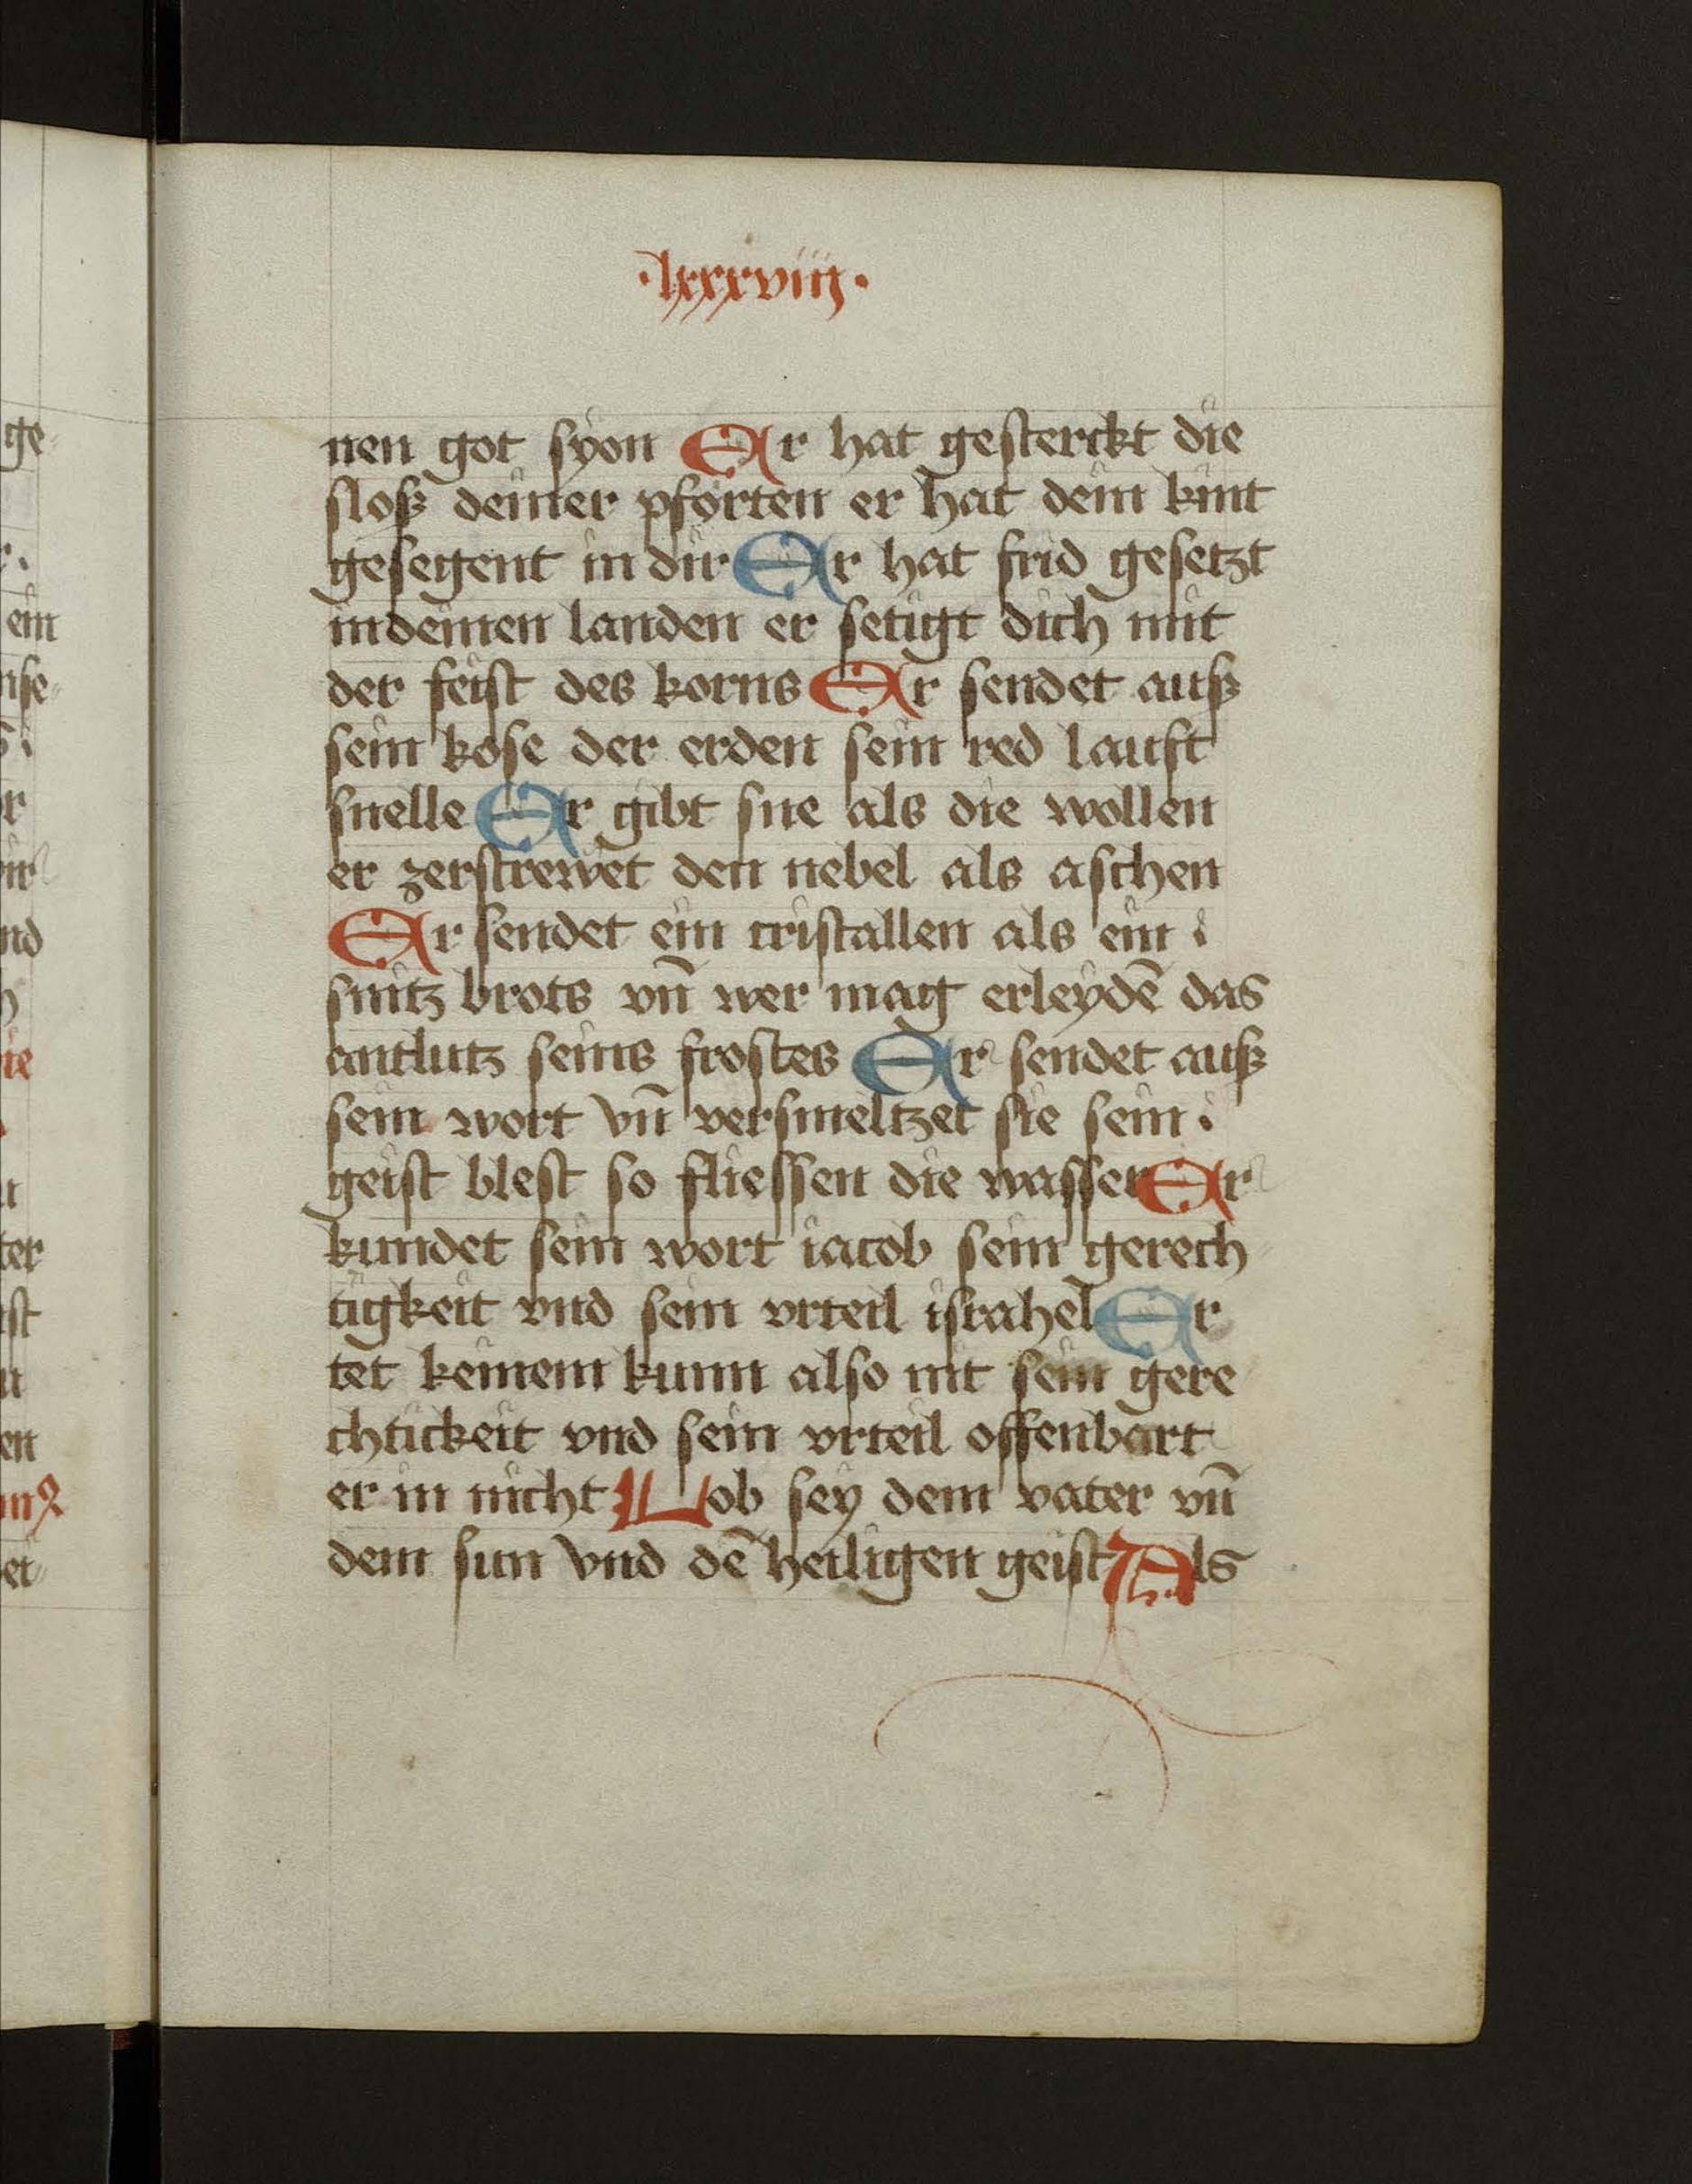 ·lxxxviij·
nen got syon Er hat gesterckt die
sloß deiner pforten er hat dein kint
gesegent in dir Er hat frid gesetzt
in deinen landen er setigt dich mit
der feist des korns Er sendet auß
sein kose der erden sein red lauft
snelle Er gibt sne als die wollen
er zerstrewet den nebel als aschen
Er sendet ein cristallen als ein
snitz brots vn̄ wer mag erleydē das
antlutz seins frostes Er sendet auß
sein wort vn̄ versmeltzet sie sein
geist blest so fliessen die wasser Er
kundet sein wort iacob sein gerech
tigkeit vnd sein vrteil israhel Er
tet keinem kunn also nit sein gere
chtickeit vnd sein vrteil offenbart
er in nicht Lob sey dem vater vn̄
dem sun vnd dē heiligen geist Als